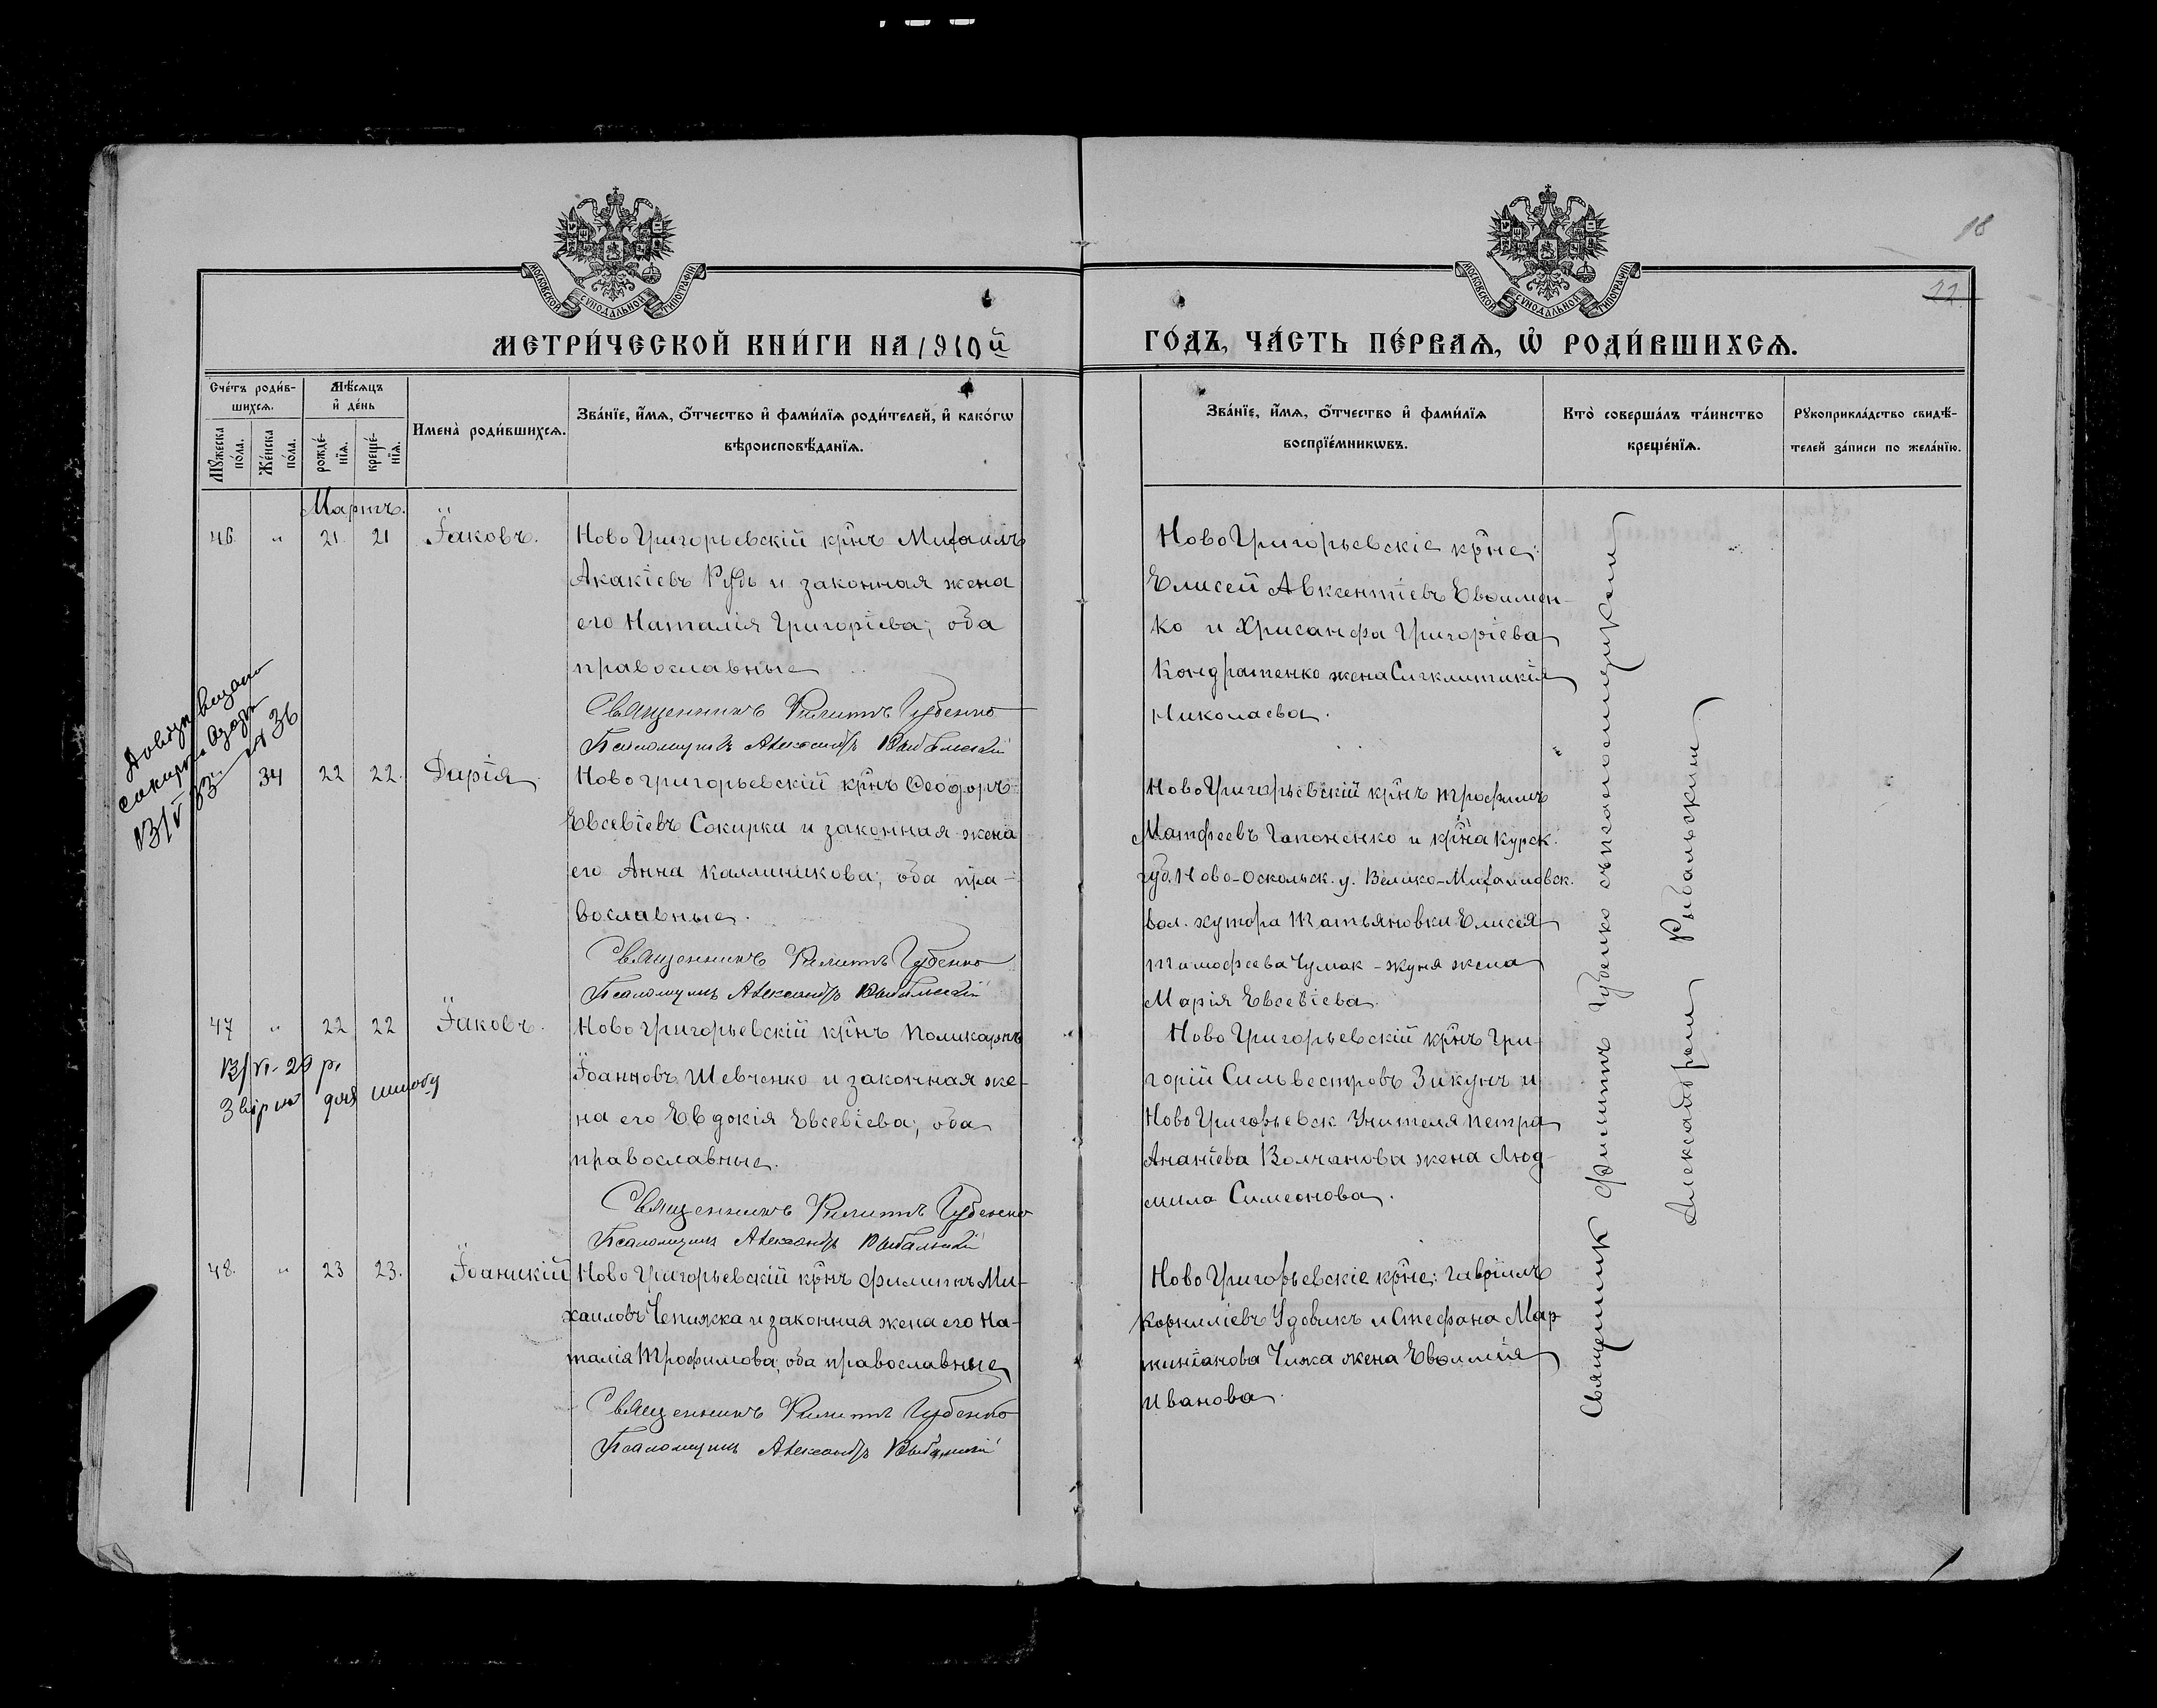 18
22
МОСКОВСКОЙ СУНОДАЛЬНОЙ ТИПОГРАФІИ
МОСКОВСКОЙ СУНОДАЛЬНОЙ ТИПОГРАФІИ
МЕТРИ́ЧЕСКОЙ КНИ́ГИ НА 1910й
ГО́ДЪ, ЧА́СТЬ ПЕ́РВАѦ, Ѡ҆ РОДИ́ВШИХСѦ.
Сче́тъ роди́в-
шихсѧ.
Мꙋ́жеска по́ла.
Же́нска по́ла.
Мѣ́сѧцъ
и҆ де́нь
рожде́-
нїѧ.
креще́-
нїѧ.
Имена̀ роди́вшихсѧ.
Зва́нїе, и҆́мѧ, ѻ҆́тчество и҆ фами́лїѧ роди́телей, и҆ како́гѡ
вѣроисповѣ́данїѧ.
Зва́нїе, и҆́мѧ, ѻ҆́тчество и҆ фами́лїѧ
воспрїе́мникѡвъ.
Кто̀ соверша́лъ та́инство
креще́нїѧ.
Рꙋкоприкла́дство свидѣ́-
телей за́писи по жела́нїю.
Мартъ.
46. „ 21. 21 Іаковъ.
НовоГригорьевскій крнъ Михаилъ
Акакіевъ Рудь и законная жена
его Наталія Григоріева; оба
православные
Священникъ Филиппъ Губенко
Псаломщикъ Александръ Рыбальскій
НовоГригорьевскіе крне:
Елисей Авксентіевъ Евоимен-
ко и Хрисанфа Григоріева
Кондратенко жена Сигклитикія
Николаева.
Сокирка
13/V 33
34 22 22. Дарія
НовоГригорьевскій крнъ Ѳеодоръ
Евсевіевъ Сокирка и законная жена
его Анна Каллиникова; оба пра-
вославные.
Священникъ Филиппъ Губенко
Псаломщикъ Александръ Рыбальскій
НовоГригорьевскій крнъ Трофимъ
Матфеевъ Гапоненко и крна Курск.
губ. Ново-Оскольск. у. Велико-Михаиловск.
вол. хутора Татьяновки Елисея
Тимофеева Чумак-жуня жена
Марія Евсевіева.
47 „ 22 22 Іаковъ.
13/VI-29 р.
Звірно для шлюбу
НовоГригорьевскій крнъ Поликарпъ
Іоанновъ Шевченко и законная же-
на его Евдокія Евсевіева; оба
православные.
Священникъ Филиппъ Губенко
Псаломщикъ Александръ Рыбальскій
НовоГригорьевскій крнъ Гри-
горій Сильвестровъ Зикунъ и
НовоГригорьевск Учителя Петра
Ананіева Волчанова жена Люд-
мила Симеонова.
48. „ 23 23. Іоаникій
НовоГригорьевскій крнъ Филиппъ Ми-
хаиловъ Чепижка и законная жена его На-
талія Трофимова; оба православные
Священникъ Филиппъ Губенко
Псаломщикъ Александръ Рыбальскій
НовоГригорьевскіе крне: Гавріилъ
Корниліевъ Удовикъ и Стефана Мар-
тиніанова Чижа жена Евоимія
Иванова.
Священник Филиппъ Губенко съ псаломщиком
Александром Рыбальским